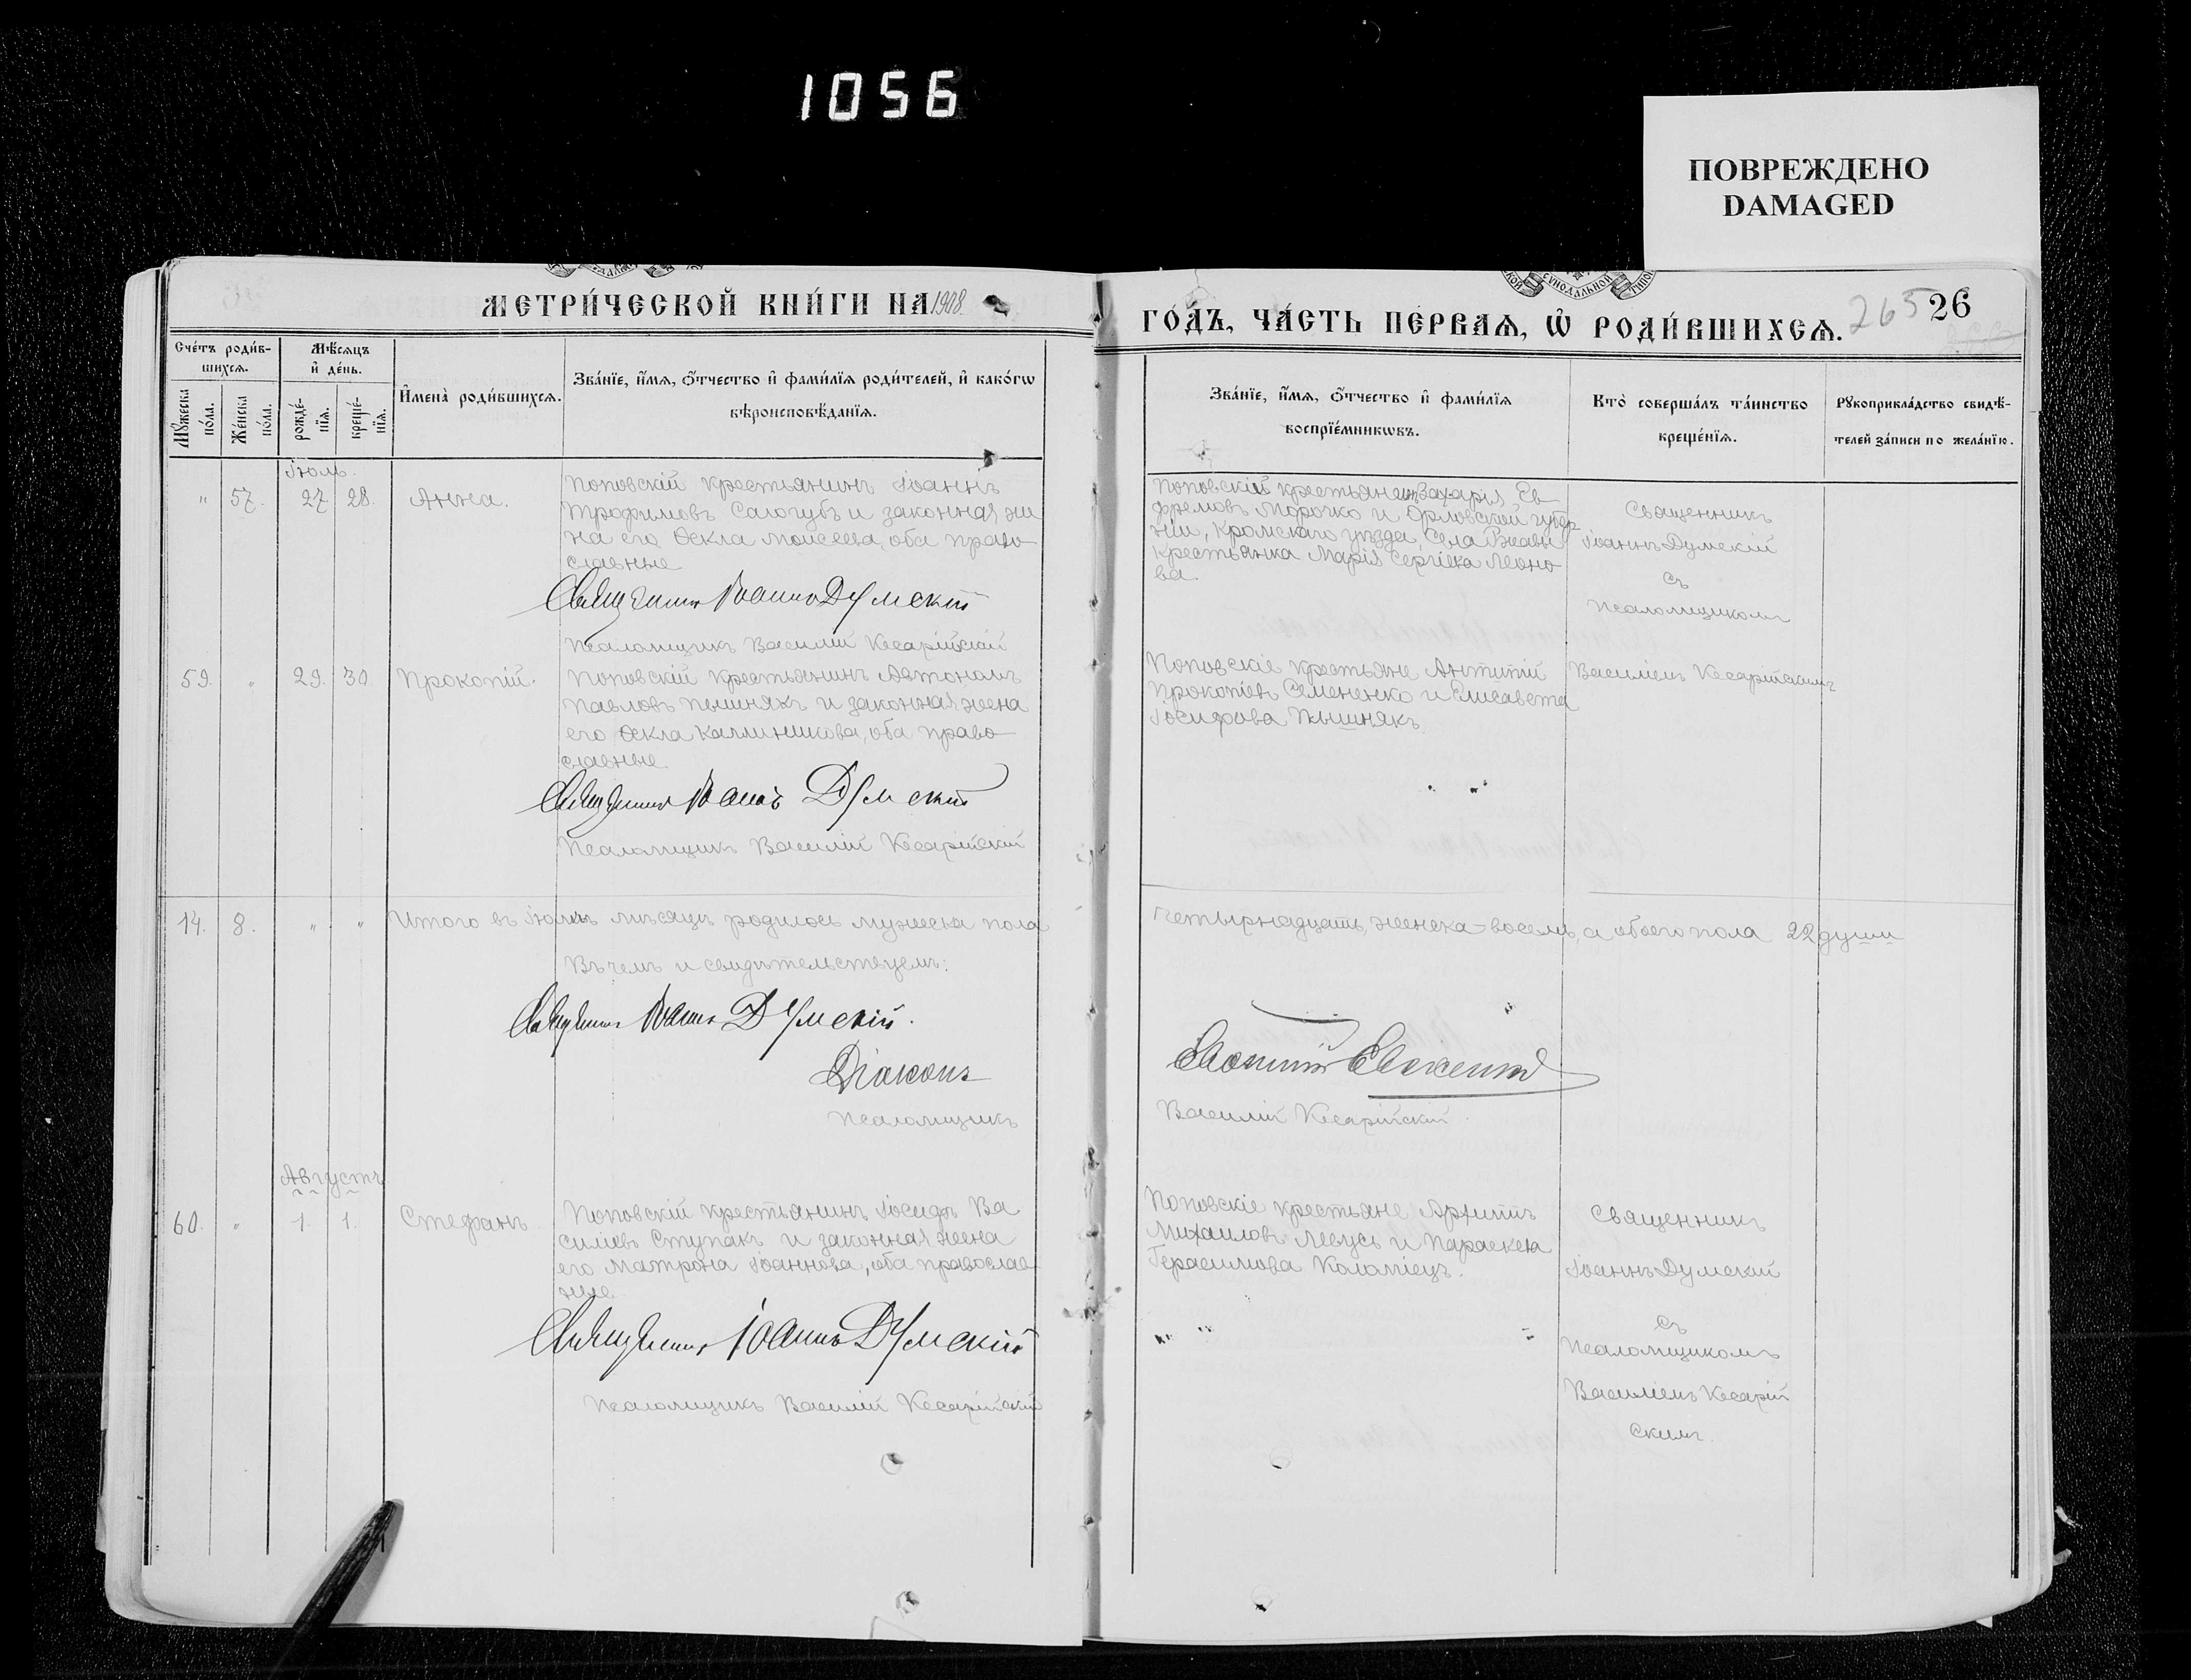 1056
ПОВРЕЖДЕНО
DAMAGED
МЕТРИ́ЧЕСКОЙ КНИ́ГИ НА 1908
ГО́ДЪ, ЧА́СТЬ ПЕ́РВАѦ, Ѿ РОДИ́ВШИХСѦ.
265 26
Сче́тъ роди́в-
шихсѧ.
Мѣ́сѧцъ
и҆ де́нь.
Мꙋ́жеска
по́ла.
Же́нска
по́ла.
рожде́-
нїѧ.
креще́-
нїѧ.
И҆мена̀ роди́вшихсѧ.
Зва́нїе, и҆́мѧ, ѻ҆́тчество и҆ фами́лїѧ роди́телей, и҆ како́гѡ
вѣроисповѣ́данїѧ.
Зва́нїе, и҆́мѧ, ѻ҆́тчество и҆ фами́лїѧ
воспрїе́мникѡвъ.
Кто̀ соверша́лъ та́инство
креще́нїѧ.
Рꙋкоприкла́дство свидѣ́-
телей за́писи по жела́нїю.
Іюль.
" 57. 27 28. Анна.
Поповскій крестьянинъ Іоаннъ
Трофимовъ Салогубъ и законная же
на его Ѳекла Моисеева, оба право
славные
Священникъ Іоаннъ Думскій
Псаломщикъ Василій Кесарійскій
Поповскій крестьянинъ Захарія Ев
фремовъ Морочко и Орловской губер
ніи, Кромскаго уѣзда, Села Ржавы
крестьянка Марія Сергіева Леоно
ва.
Священникъ
Іоаннъ Думскій
съ
Псаломщикомъ
Василіемъ Кесарійскимъ
59. " 29. 30. Прокопій.
Поповскій крестьянинъ Автономъ
Павловъ Пышнякъ и законная жена
его Ѳекла Каллиникова, оба право
славные.
Священникъ Іоаннъ Думскій
Псаломщикъ Василій Кесарійскій
Поповскіе крестьяне Антипій
Прокопіевъ Семененко и Елисавета
Іосифова Пышнякъ
14. 8. " " Итого въ Іюлѣ мѣсяцѣ родилось мужеска пола
четырнадцать, женска - восемь, а обоего пола 22 души
Въ чемъ и свидѣтельствуемъ:
Священникъ Іоаннъ Думскій.
Діаконъ
Псаломщикъ
Василій Кесарійскій
Августъ
60. " 1. 1. Стефанъ
Поповскій крестьянинъ Іосифъ Ва
силіевъ Ступакъ и законная жена
его Матрона Іоаннова, оба православ
ные
Священникъ Іоаннъ Думскій
Псаломщикъ Василій Кесарійскій
Поповскіе крестьяне Архиппъ
Михаиловъ и Параскева
Герасимова Коломіецъ.
Священникъ
Іоаннъ Думскій
съ
Псаломщикомъ
Василіемъ Кесарій
скимъ.